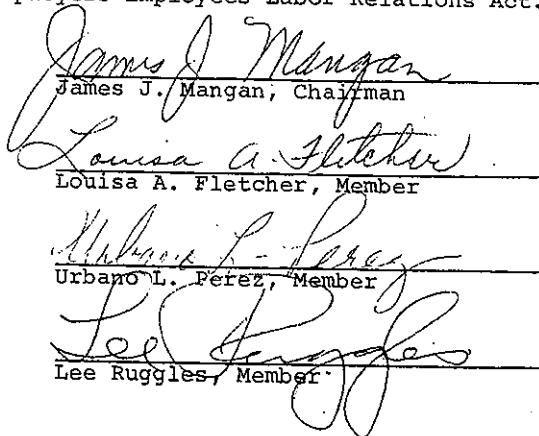 Employees Labor Relations Act.
James J. Mangan
James J. Mangan, Chairman
Louisa A. Fletcher
Louisa A. Fletcher, Member
Urbano L. Perez
Urbano L. Perez, Member
Lee Ruggles
Lee Ruggles, Member